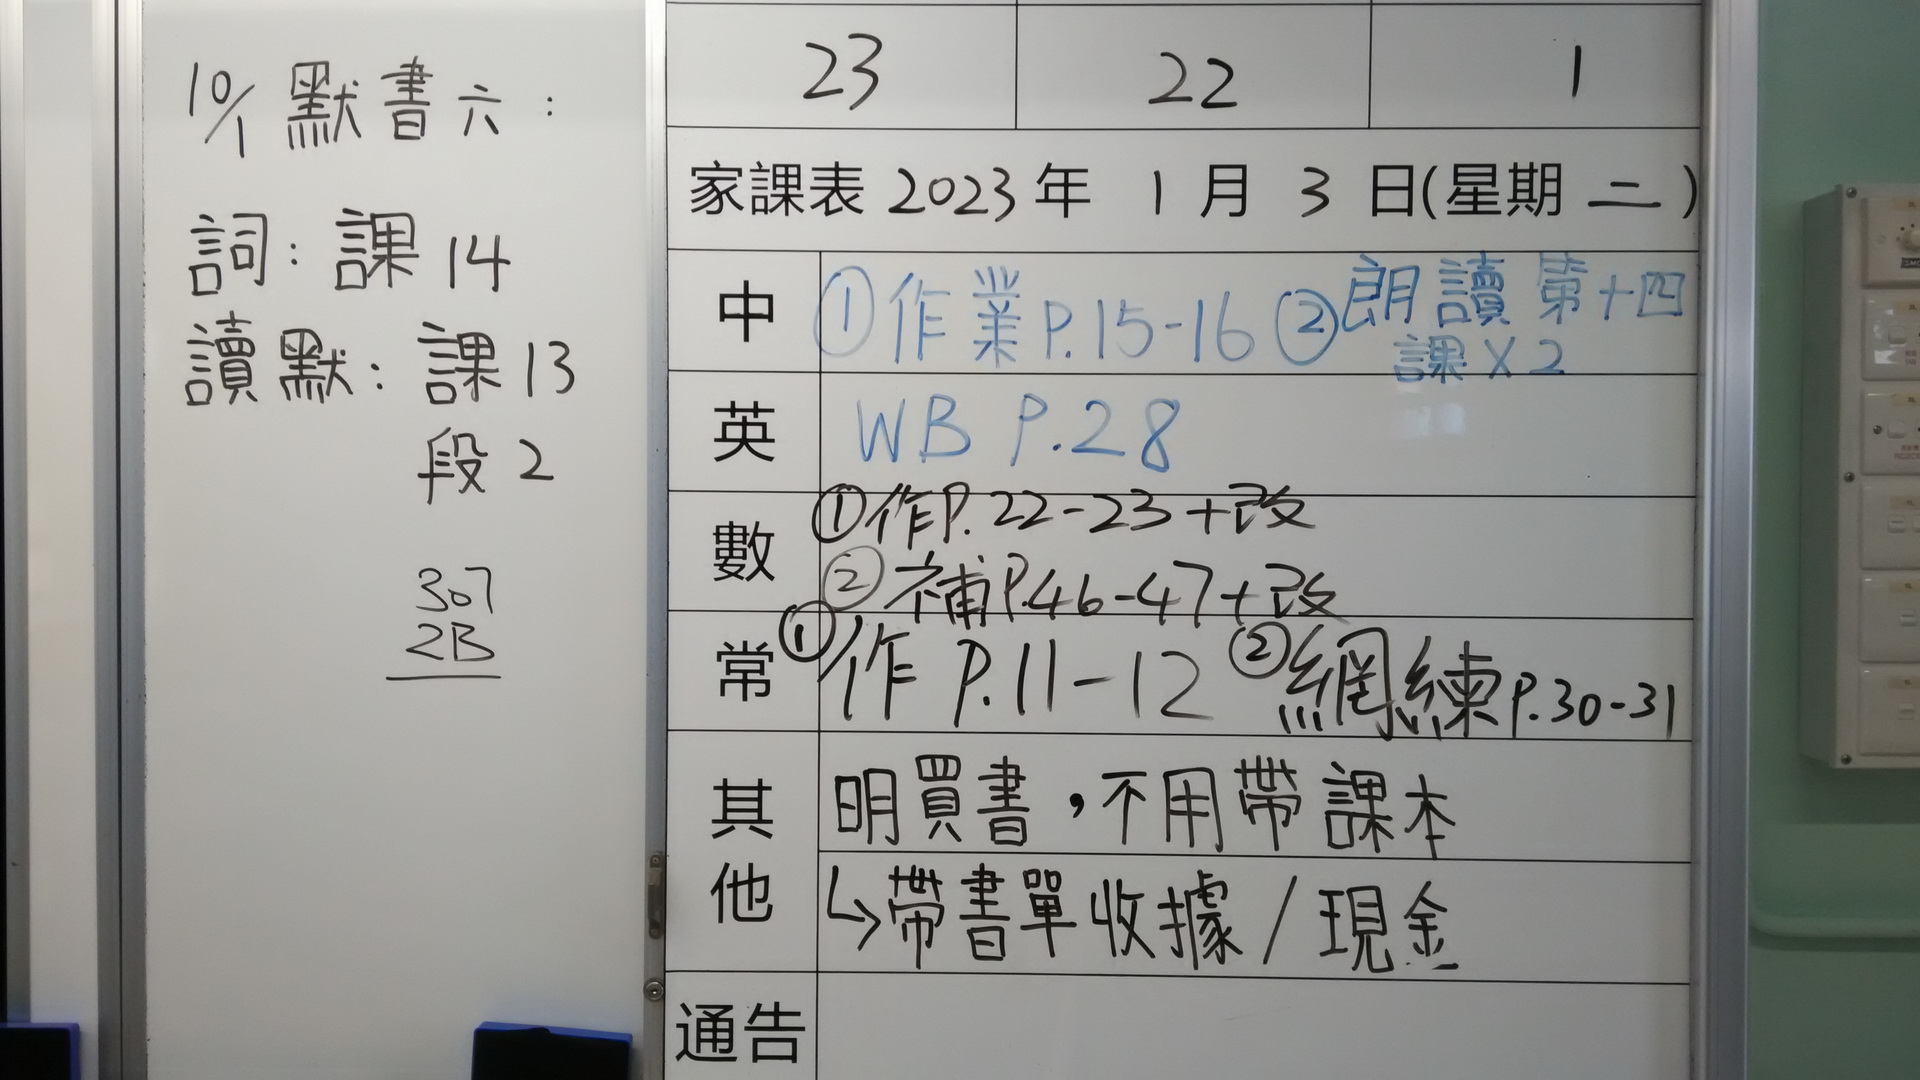 10/1 默書六：
詞：課14
讀默：課13
段2
307
2B
23 22 1
家課表 2023 年 1 月 3 日(星期 二)
中 ①作業P.15-16 ②朗讀第十四
課X2
英 WB P.28
數 ①作P.22-23+改
②補P.46-47+改
常 ①作P.11-12 ②網練P.30-31
其他 明買書，不用帶課本
↳帶書單收據/現金
通告